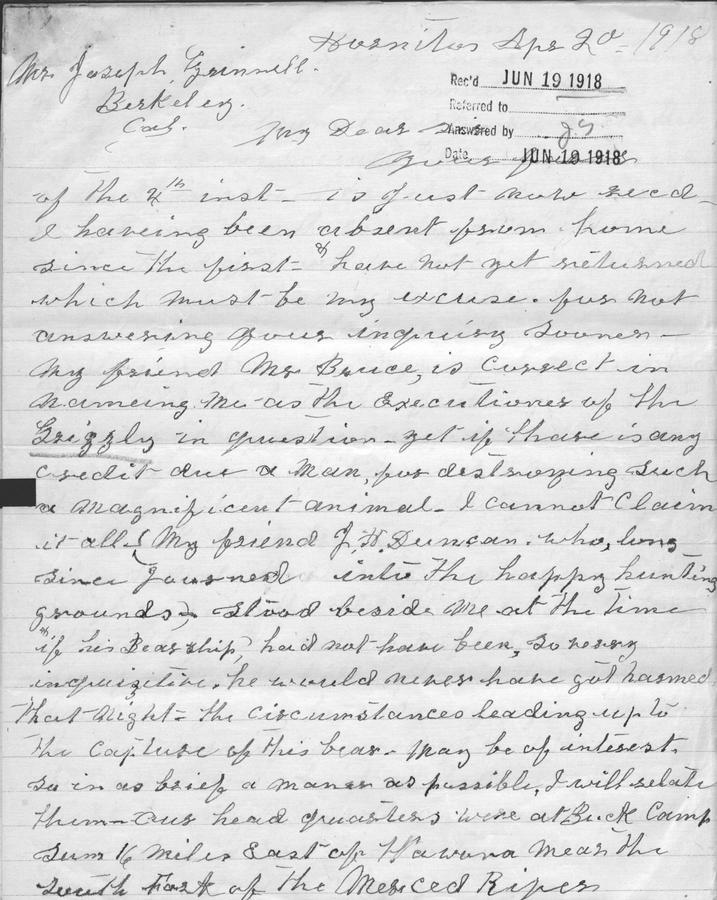 Hornitos Apr 20 - 1918
Mr Joseph Grinnell.
Berkeley.
Cal.
Rec'd JUN 19 1918
Referred to
Answered by JG.
Date JUN 19 1918
My Dear Sir
Yours
of the 4th inst - is just now recd -
I haveing been absent from home
since the first - & have not yet returned
which must be my excuse. for not
answering your inquiry sooner -
My friend Mr Bruce, is correct in
nameing me - as the Executioner of the
Grizzly in question - yet if there is any
credit due a man, for destroying such
a magnificent animal - I cannot claim
it all (My friend J. H. Duncan. who, long
since journed into the happy hunting
grounds) stood beside me at the time
& if his Bearship, had not have been, so very
inquizitive. he would never have got harmed
that night - the circumstances leading up to
the capture of this bear - may be of interest.
so in as brief a maner as possible, I will relate
them - our head quarters were at Buck Camp
sum 16 miles East of Wawona near the
South Fork of the Merced River